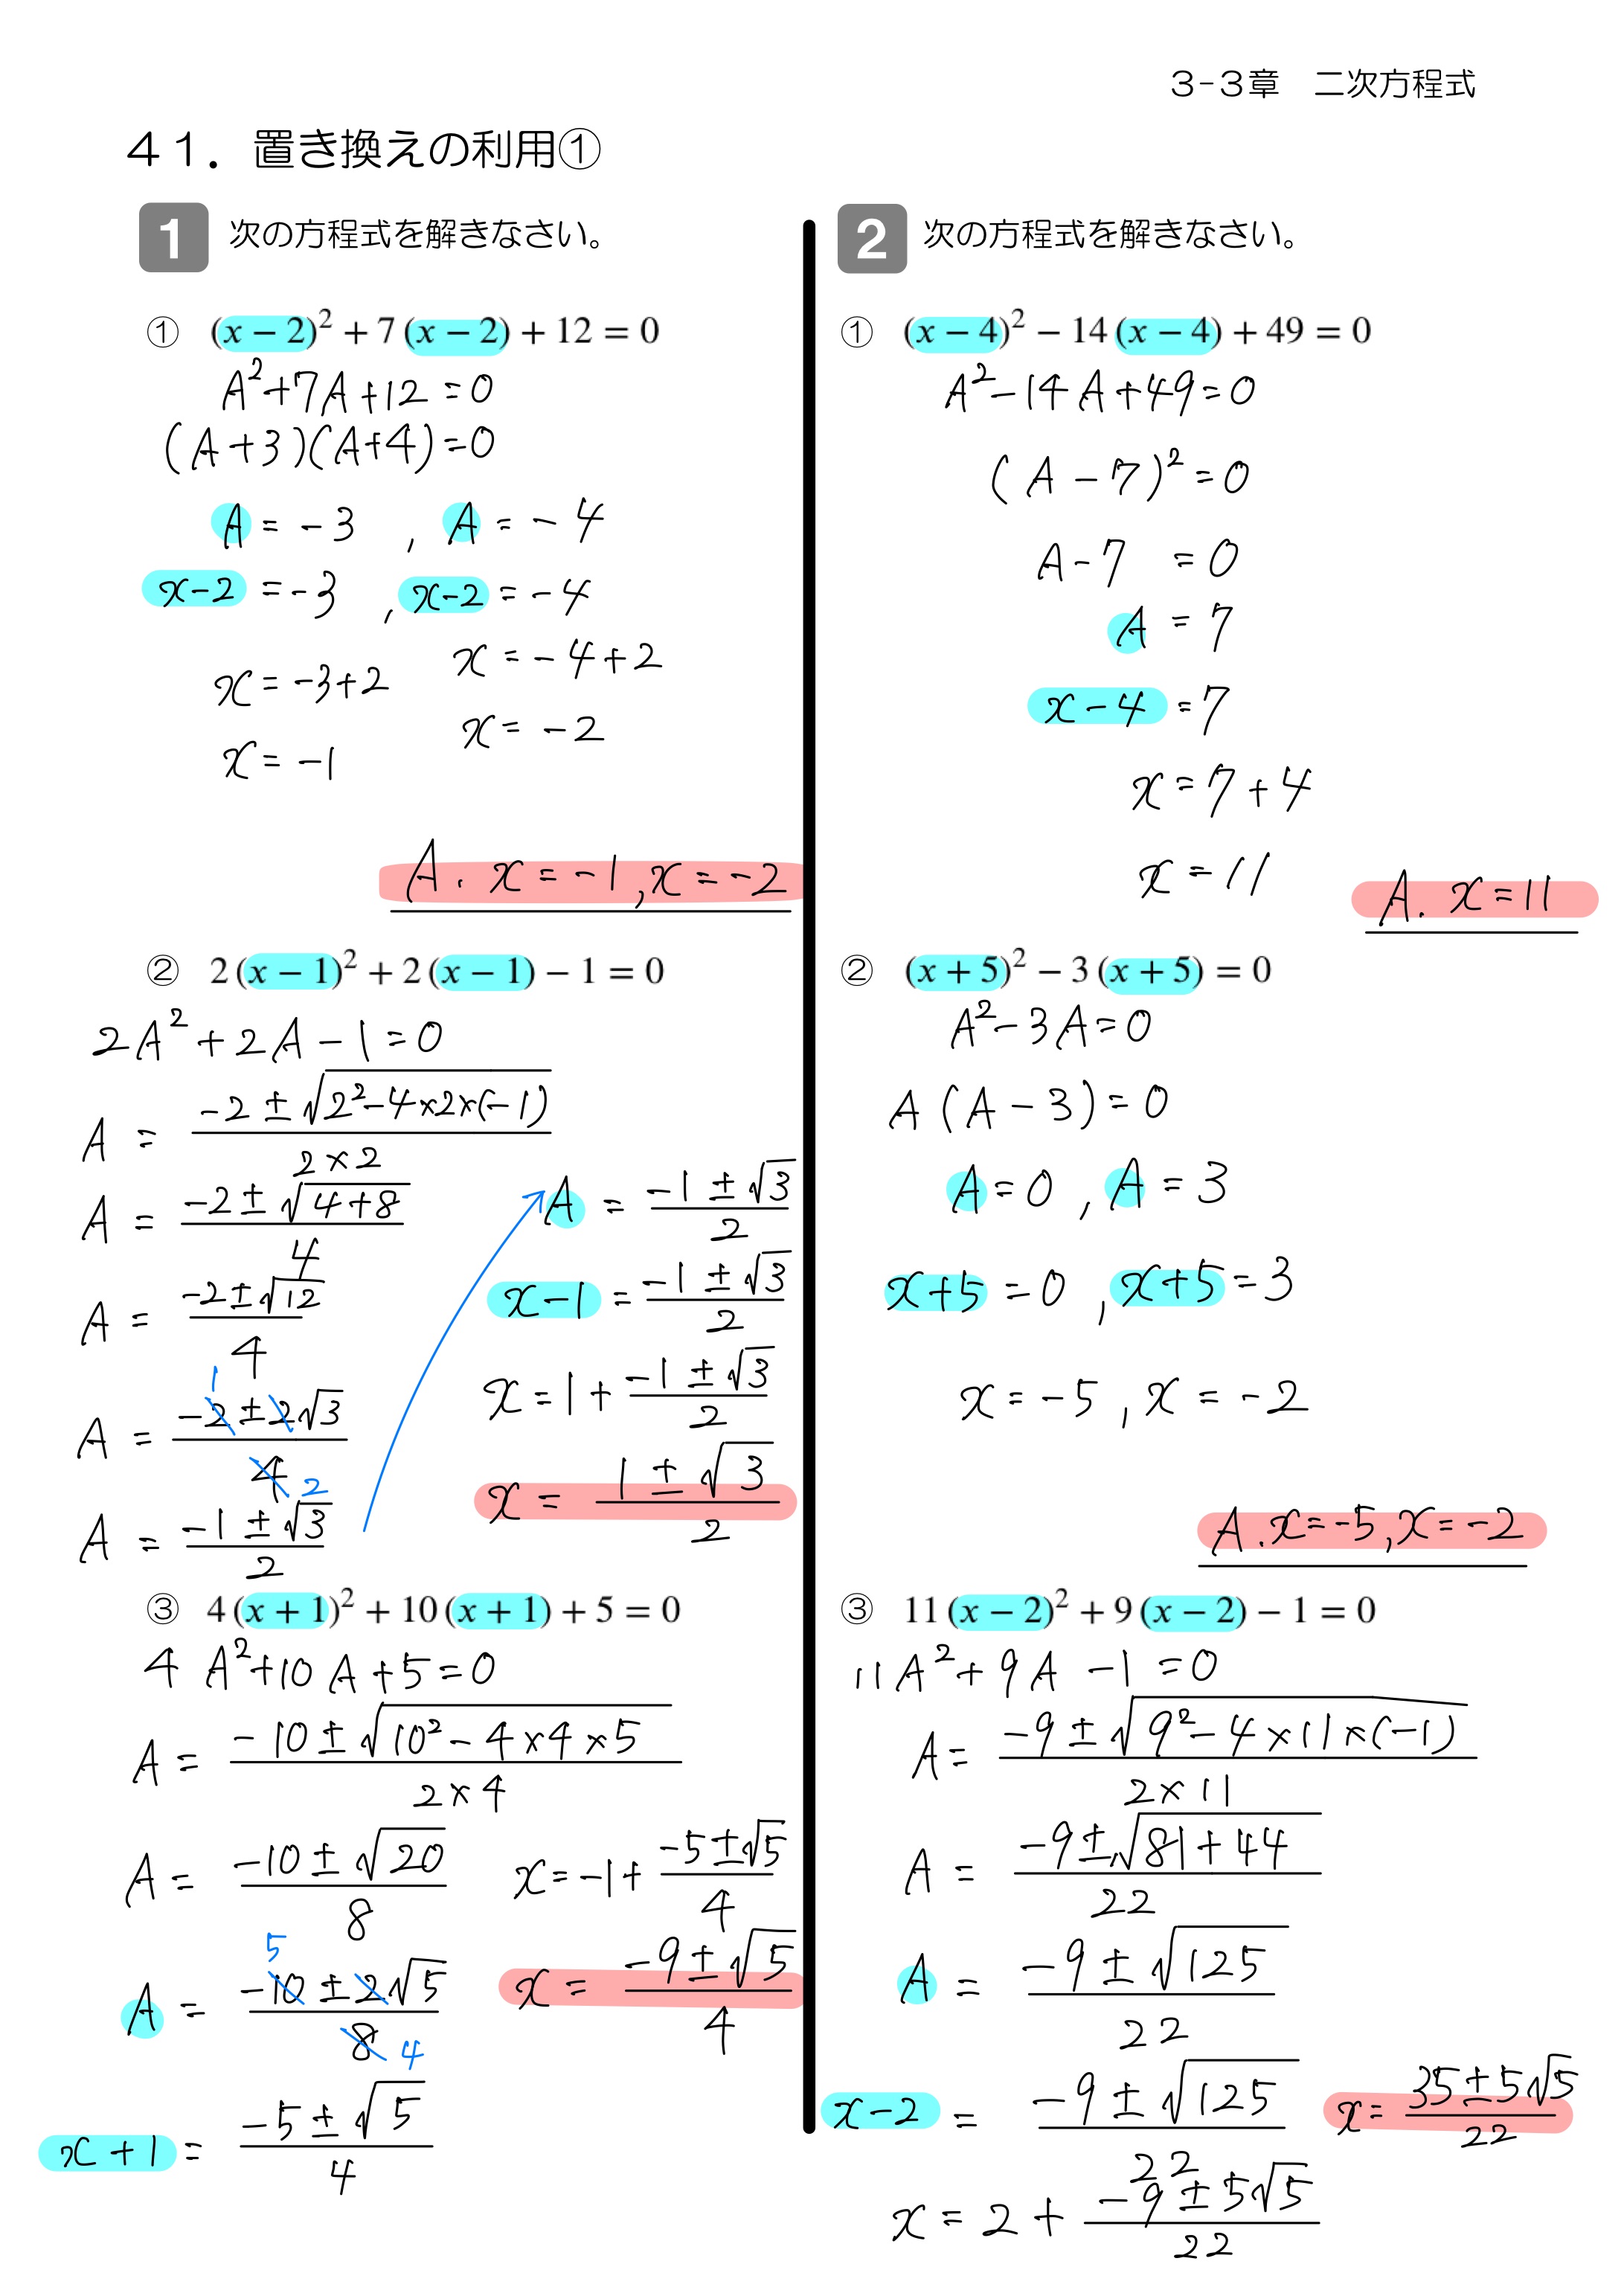 3-3章 二次方程式
41. 置き換えの利用①
1 次の方程式を解きなさい。
① (x − 2)² + 7 (x − 2) + 12 = 0
A²+7A+12=0
(A+3)(A+4)=0
A=-3 , A=-4
x-2=-3 , x-2=-4
x=-3+2 x=-4+2
x=-1 x=-2
A. x=-1, x=-2
② 2 (x − 1)² + 2 (x − 1) − 1 = 0
2A²+2A-1=0
A = (-2±√(2²-4×2×(-1)))/(2×2)
A = (-2±√(4+8))/4
A = (-2±√12)/4
A = (-2±2√3)/4 1 2
A = (-1±√3)/2
A = (-1±√3)/2
x-1 = (-1±√3)/2
x = 1+(-1±√3)/2
x = (1±√3)/2
③ 4 (x + 1)² + 10 (x + 1) + 5 = 0
4A²+10A+5=0
A = (-10±√(10²-4×4×5))/(2×4)
A = (-10±√20)/8
A = (-10±2√5)/8 5 4
x+1 = (-5±√5)/4
x = -1+(-5±√5)/4
x = (-9±√5)/4
2 次の方程式を解きなさい。
① (x − 4)² − 14 (x − 4) + 49 = 0
A²-14A+49=0
(A-7)²=0
A-7=0
A=7
x-4=7
x=7+4
x=11
A. x=11
② (x + 5)² − 3 (x + 5) = 0
A²-3A=0
A(A-3)=0
A=0 , A=3
x+5=0 , x+5=3
x=-5 , x=-2
A. x=-5, x=-2
③ 11 (x − 2)² + 9 (x − 2) − 1 = 0
11A²+9A-1=0
A = (-9±√(9²-4×11×(-1)))/(2×11)
A = (-9±√(81+44))/22
A = (-9±√125)/22
x-2 = (-9±√125)/22
x = 2+(-9±5√5)/22
x = (35±5√5)/22